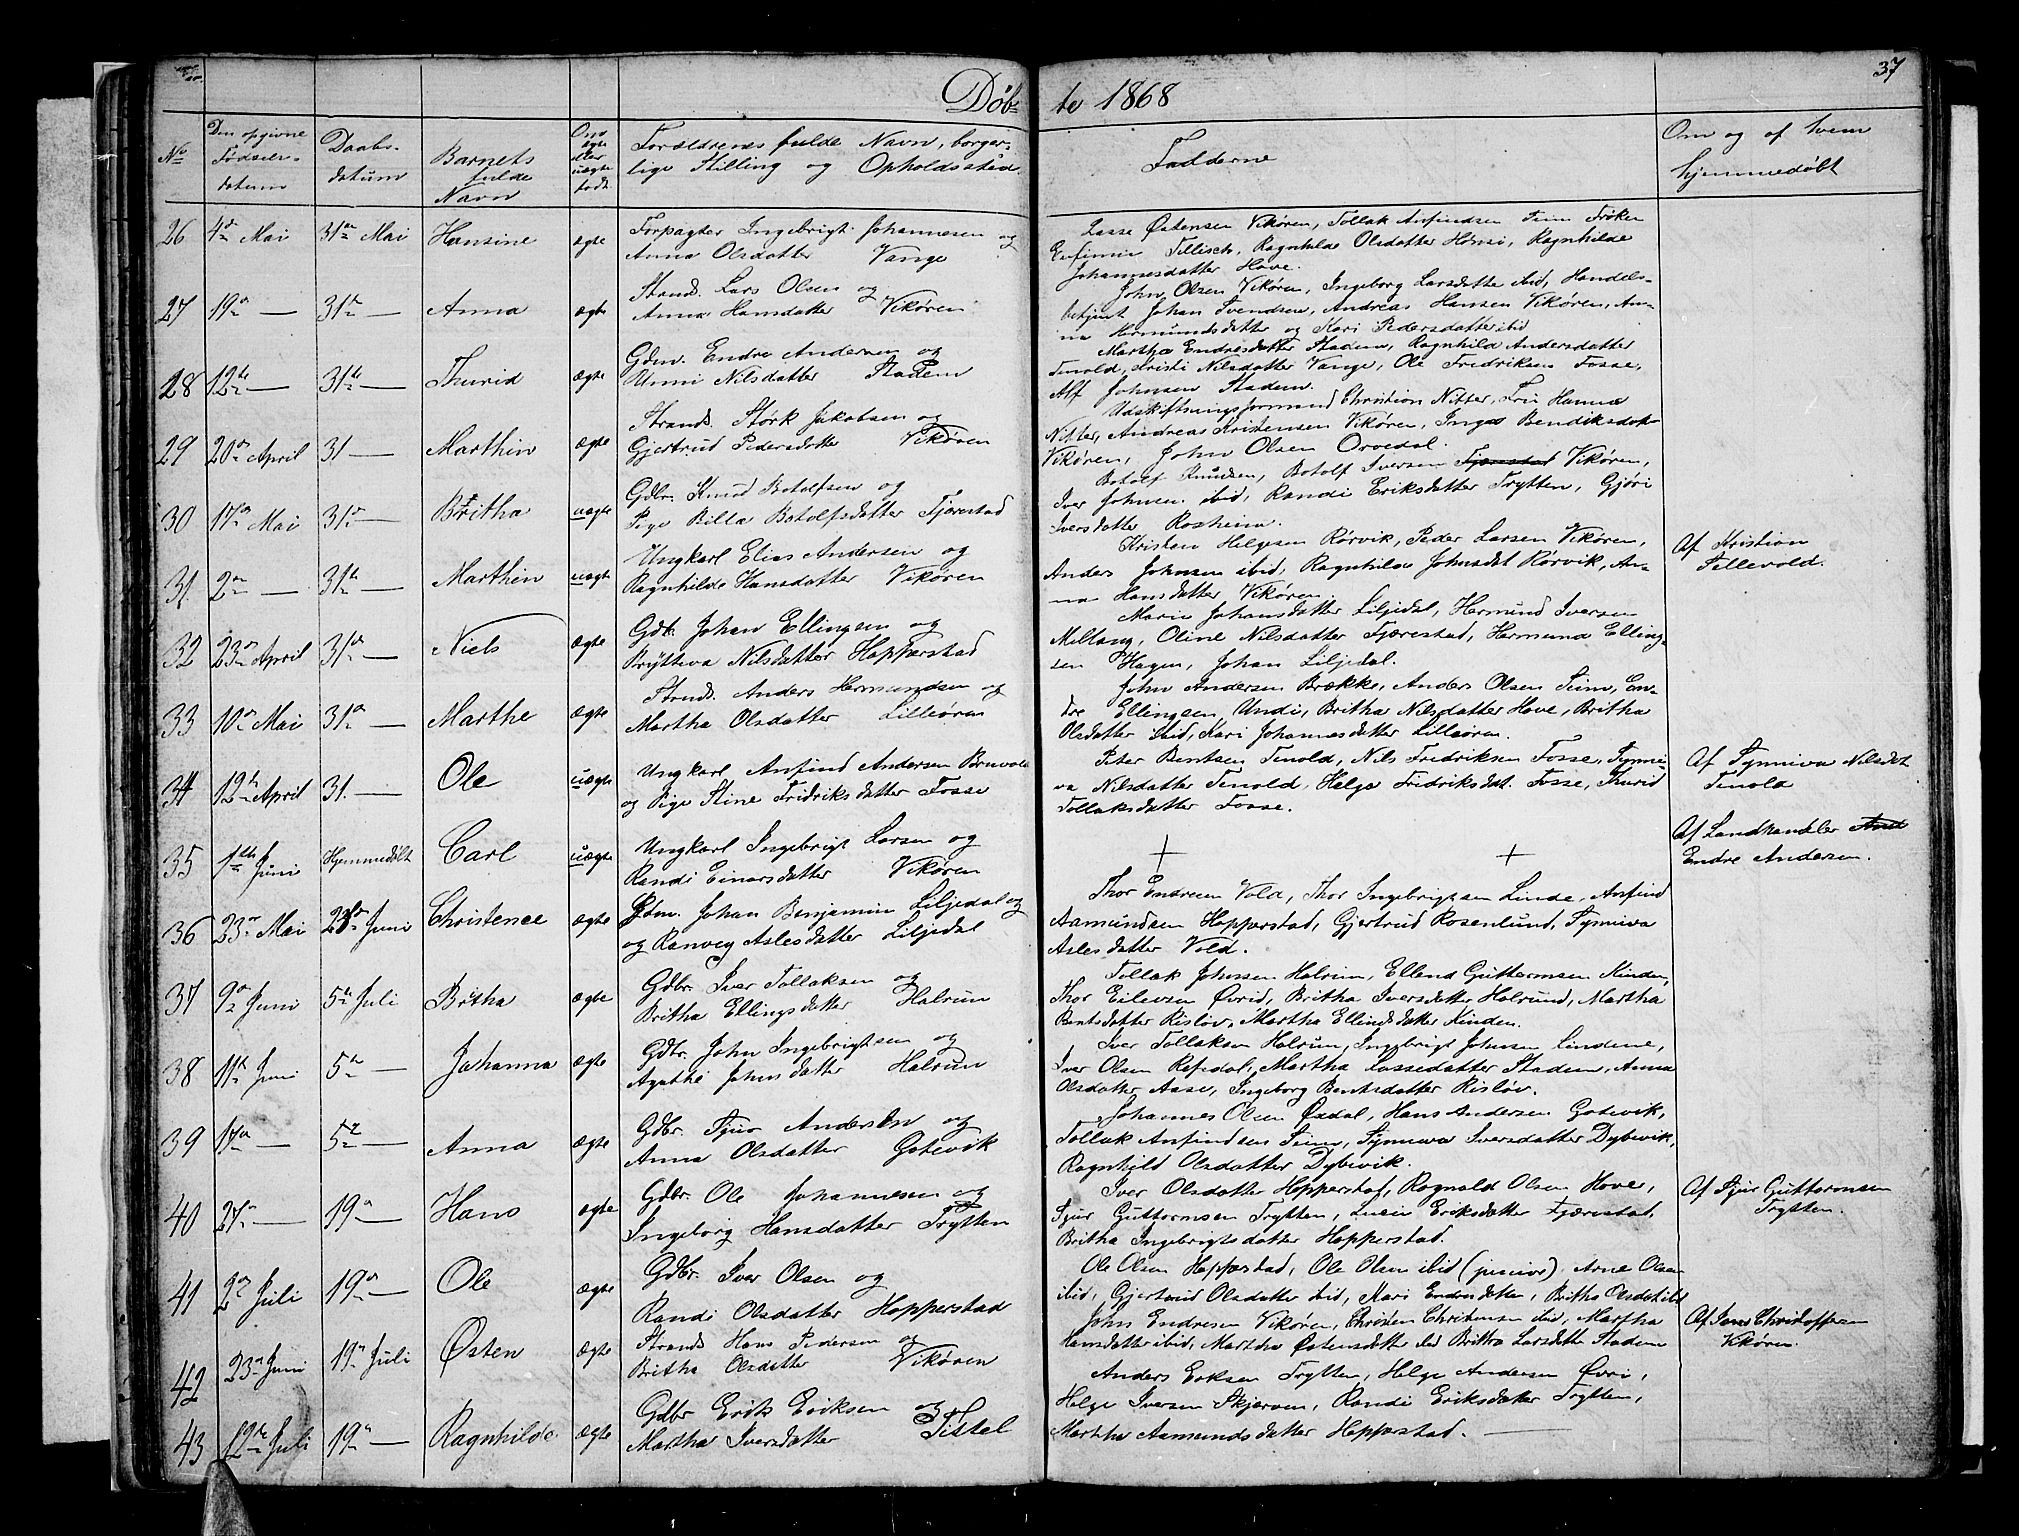 37
Døb- te 1868
No
Den opgivne Fødsels- datum
Daabs- datum
Barnets fulde Navn
Om ægte eller uægte født
Forældrenes fulde Navn, borger-
lige Stilling og Opholdssted
Fadderne
Om og af hvem
hjemmedøbt
26 4de Mai 31te Mai Hansine ægte Forpagter Ingebrigt Johannesen og
Anna Olsdatter Vange
Lasse Østensen Vikøren, Tollak Anfindsen Seim Frøken
Eufimia Tillisch, Ragnhilde Olsdatter Hønsi, Ragnhilde
Johannesdatter Hove.
27 19de — 31te — Anna ægte Strands. Lars Olsen og
Anna Hansdatter Vikøren
John Olsen Vikøren, Ingeborg Larsdatter ibid, Handels-
betjent Johan Svendsen, Andreas Hansen Vikøren, An-
na Hermundsdatter og Kari Pedersdatter ibid
28 12te — 31te — Thurid ægte Gdm. Endre Andersen og
Unni Nilsdatter Stadem
Martha Endresdatter Stadem, Ragnhild Andersdatter
Tenold, Kristi Nilsdatter Vange, Ole Fredriksen Fosse,
Alf Johnsen Stadem.
29 20de April 31 — Marthin ægte Strands. Størk Jakobsen og
Gjertrud Pedersdatter Vikøren
Udskiftningsformand Christian Nitter, Fru Hanna
Nitter, Andreas Kristensen Vikøren, Inga Bendiksdat-
Vikøren, John Olsen Orvedal.
30 17de Mai 31te — Britha uægte Gdbr. Knud Botolfsen og
Pige Billa Botolfsdatter Fjærestad
Botolf Knudsen, Botolf Iversen Fjærestad Vikøren,
Iver Johnsen ibid, Randi Eriksdatter Trytten, Gjøri
Iversdatter Rosheim.
31 2den — 31te — Marthin uægte Ungkarl Elias Andersen og
Ragnhilde Hansdatter Vikøren
Kristen Helgesen Rørvik, Peder Larsen Vikøren,
Anders Johnsen ibid, Ragnhilde Johnsdat Rørvik, An-
na Hansdatter Vikøren.
Af Kristian
Tillevold.
32 23de April 31te — Niels ægte Gdb. Johan Ellingsen og
Brytteva Nilsdatter Hopperstad
Marie Johansdatter Liljedal, Hermund Iversen
Mellang, Oline Nilsdatter Fjærestad, Hermund Elling-
sen Hagen, Johan Liljedal.
33 10de Mai 31te — Marthe ægte Strands. Anders Hermundsen og
Martha Olsdatter Lilleøren
John Andersen Brække, Anders Olsen Seim, En-
dre Ellingsen Undi, Britha Nilsdatter Hove, Britha
Olsdatter ibid, Kari Johannesdatter Lilleøren.
34 12te April 31. — Ole uægte Ungkarl Anfind Andersen
og Pige Stine Fridriksdatter Fosse
Peter Bentsen Tenold, Nils Fredriksen Fosse, Synni-
va Nilsdatter Tenold, Helga Fridriksdat. Fosse, Thurid
Tollaksdatter Fosse.
Af Synniva Nilsdat
Tenold
35 1ste Juni Hjemmedøbt Carl uægte Ungkarl Ingebrigt Larsen og
Randi Einarsdatter Vikøren
+ +
Af Landhandler And
Endre Andersen.
36 23de Mai 28de Juni Christence ægte Gdm. Johan Benjamin Liljedal og
og Ranvey Aslesdatter Liljedal
Thor Endresen Vold, Thor Ingebrigtsen Linde, Anfind
Aamundsen Hopperstad, Gjertrud Rosenlund, Synniva
Aslesdatter Vold.
37 9de Juni 5te Juli Britha ægte Gdbr. Iver Tollaksen og
Britha Ellingsdatter Halrun
Tollak Johnsen Halrun, Ellend Guttormsen Kinden,
Thor Eilevsen Øvrid, Britha Iversdatter Halrund, Martha
Bentsdatter Risløv, Martha Ellendsdatter Kinden.
38 11te Juni 5te — Johanna ægte Gdbr. John Ingebrigtsen og
Agathe Johnsdatter Halrun
Iver Tollaksen Halrun, Ingebrigt Johnsen Lindene,
Iver Olsen Refsdal, Martha Lassedatter Stadem, Anna
Olsdatter Aase, Ingeborg Bentsdatter Risløv.
39 17de — 5te — Anna ægte Gdbr. Sjur Andersen og
Anna Olsdatter Gotevik
Johannes Olsen Øxdal, Hans Andersen Gotevik,
Tollak Anfindsen Seim, Synneva Iversdatter Dybevik,
Ragnhild Olsdatter Dybevik.
40 27de — 19de — Hans ægte Gdbr. Ole Johannesen og
Ingeborg Hansdatter Trytten
Iver Olsdatter Hopperstad, Ragnald Olsen Hove,
Sjur Guttormsen Trytten, Lucie Eriksdatter Fjærestad,
Britha Ingebrigtsdatter Hopperstad.
Af Sjur Guttormsen
Trytten.
41 2den Juli 19de — Ole ægte Gdbr. Iver Olsen og
Randi Olsdatter Hopperstad
Ole Olsen Hopperstad, Ole Olsen ibid (junior). Arne Olsen
ibid, Gjertrud Olsdatter ibid, Kari Endresdatter, Britha Olsdat ibid
42 23de Juni 19de Juli Østen ægte Strands Hans Pedersen og
Britha Olsdatter Vikøren
John Endresen Vikøren, Christen Christensen ibid, Martha
Hansdatter ibid, Martha Østensdatter ibid Britha Larsdatter Stadem
Af Jens Christoffersen
Vikøren.
43 12te Juli 19de — Ragnhilde ægte Gdbr Erik Eriksen og
Martha Iversdatter Tistel
Anders Eriksen Trytten, Helge Andersen Øvri,
Helge Iversen Skjerven, Randi Eriksdatter Trytten,
Martha Aamundsdatter Hopperstad. —